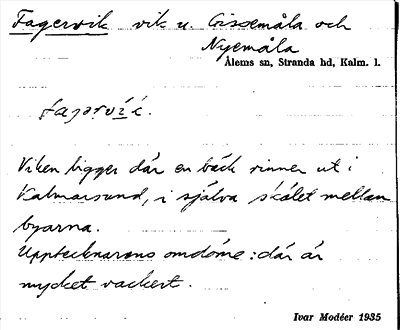 Fagervik vik u. Gissemåla och
Nyemåla
Ålems sn, Stranda hd, Kalm. l.
fagərvik.
Viken ligger där en bäck rinner ut i
Kalmarsund, i själva skälet mellan
byarna.
Upptecknarens omdöme: där är
mycket vackert.
Ivar Modéer 1935